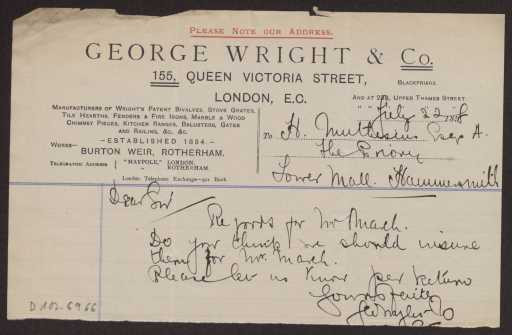 PLEASE NOTE OUR ADDRESS.
GEORGE WRIGHT & Co.
155, QUEEN VICTORIA STREET,
BLACKFRIARS.
LONDON, E.C.
AND AT 229, UPPER THAMES STREET.
MANUFACTURERS OF WRIGHT'S PATENT BIVALVES, STOVE GRATES,
TILE HEARTHS, FENDERS & FIRE IRONS, MARBLE & WOOD
CHIMNEY PIECES, KITCHEN RANGES, BALUSTERS, GATES
AND RAILING, &c. &c.
—ESTABLISHED 1854.—
WORKS—
BURTON WEIR, ROTHERHAM.
TELEGRAPHIC ADDRESS
"MAYPOLE," LONDON.
" ROTHERHAM.
London Telephone Exchange—
Bank
July 22
To H. Muthesius Esqr A.
The Priory
Lower Mall. Hammersmith
Dear Sir
Re goods for Mr Mach.
Do you think we should insure
them for Mr. March.
Please let us know per return
Yours